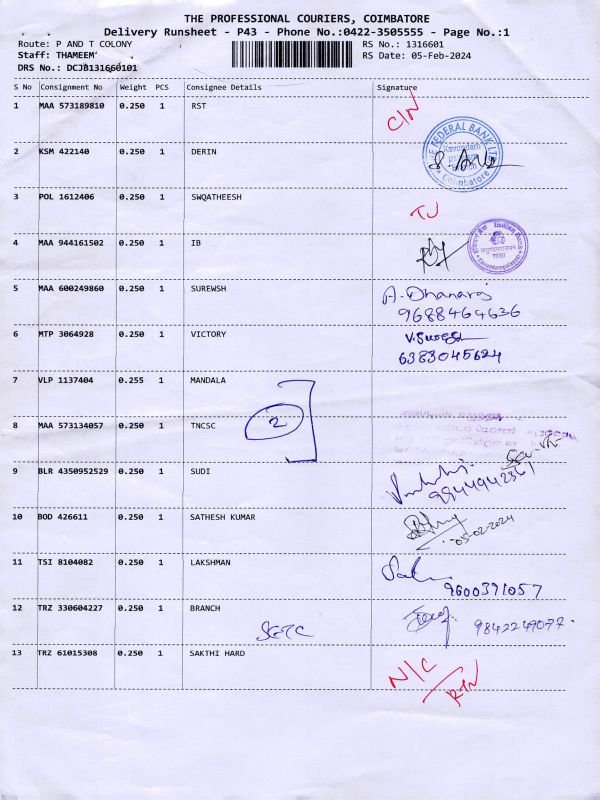 THE PROFESSIONAL COURIERS, COIMBATORE
Delivery Runsheet - P43 - Phone No.:0422-3505555 - Page No.:1
Route: P AND T COLONY
RS No.: 1316601
Staff: THAMEEM
RS Date: 05-Feb-2024
DRS No.: DCJB131660101
S No Consignment No Weight PCS Consignee Details Signature
1 MAA 573189810 0.250 1 RST
C/N
2 KSM 422140 0.250 1 DERIN
THE FEDERAL BANK LTD
Coimbatore
3 POL 1612406 0.250 1 SWQATHEESH
TJ
4 MAA 944161502 0.250 1 IB
Indian Bank
5 MAA 600249860 0.250 1 SUREWSH
A. Dhanaraj
9688464636
6 MTP 3064928 0.250 1 VICTORY
V. Suresh
6383045624
7 VLP 1137404 0.255 1 MANDALA
2
8 MAA 573134057 0.250 1 TNCSC
9 BLR 4350952529 0.250 1 SUDI
9944942361
10 BOD 426611 0.250 1 SATHESH KUMAR
05-02-2024
11 TSI 8104082 0.250 1 LAKSHMAN
9600391057
12 TRZ 330604227 0.250 1 BRANCH
SETC
9842249077
13 TRZ 61015308 0.250 1 SAKTHI HARD
N/C
RTN